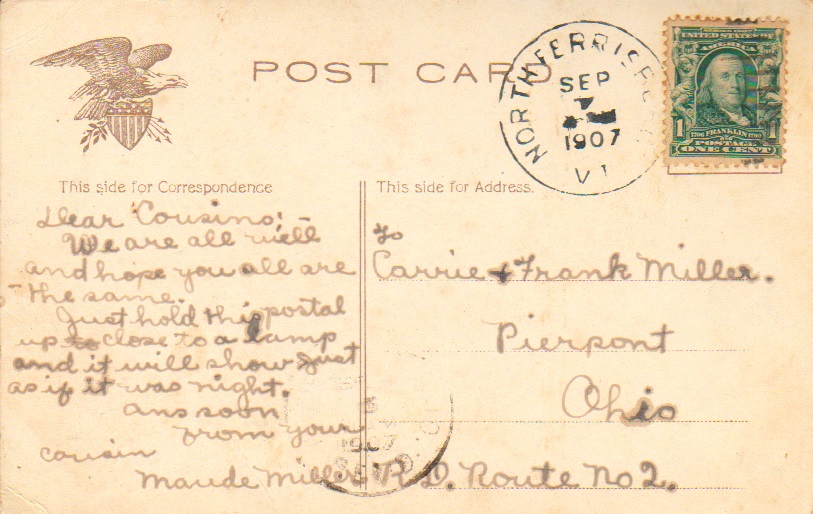 POST CARD
NORTH FERRISBURG
SEP
7
1907
VT
UNITED STATES OF
AMERICA
1 1706 FRANKLIN 1790 1
POSTAGE
ONE CENT
This side for Correspondence
Dear Cousins:-
We are all well
and hope you all are
the same.
Just hold this postal
up to close to a lamp
and it will show just
as if it was night.
ans soon
from your
cousin
Maude Miller
This side for Address.
To
Carrie & Frank Miller.
Pierpont
Ohio
R.D. Route No 2.
1907